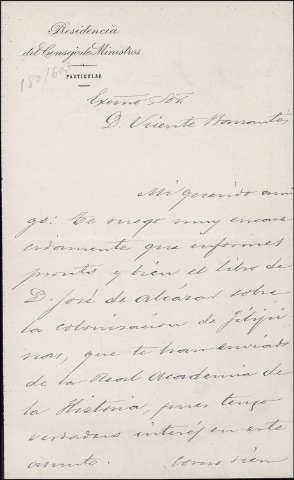 Presidencia
del Consejo de Ministros
PARTICULAR
Excmo Sor
D. Vicente Barrantes
Mi querido ami
go: Te ruego muy encare
cidamente que informes
pronto y bien el libro de
D. José de Alcázar sobre
la colonizacion de Filipi
nas, que te han enviado
de la Real Academia de
la Historia, pues tengo
verdadero interés en este
asunto. Como bien